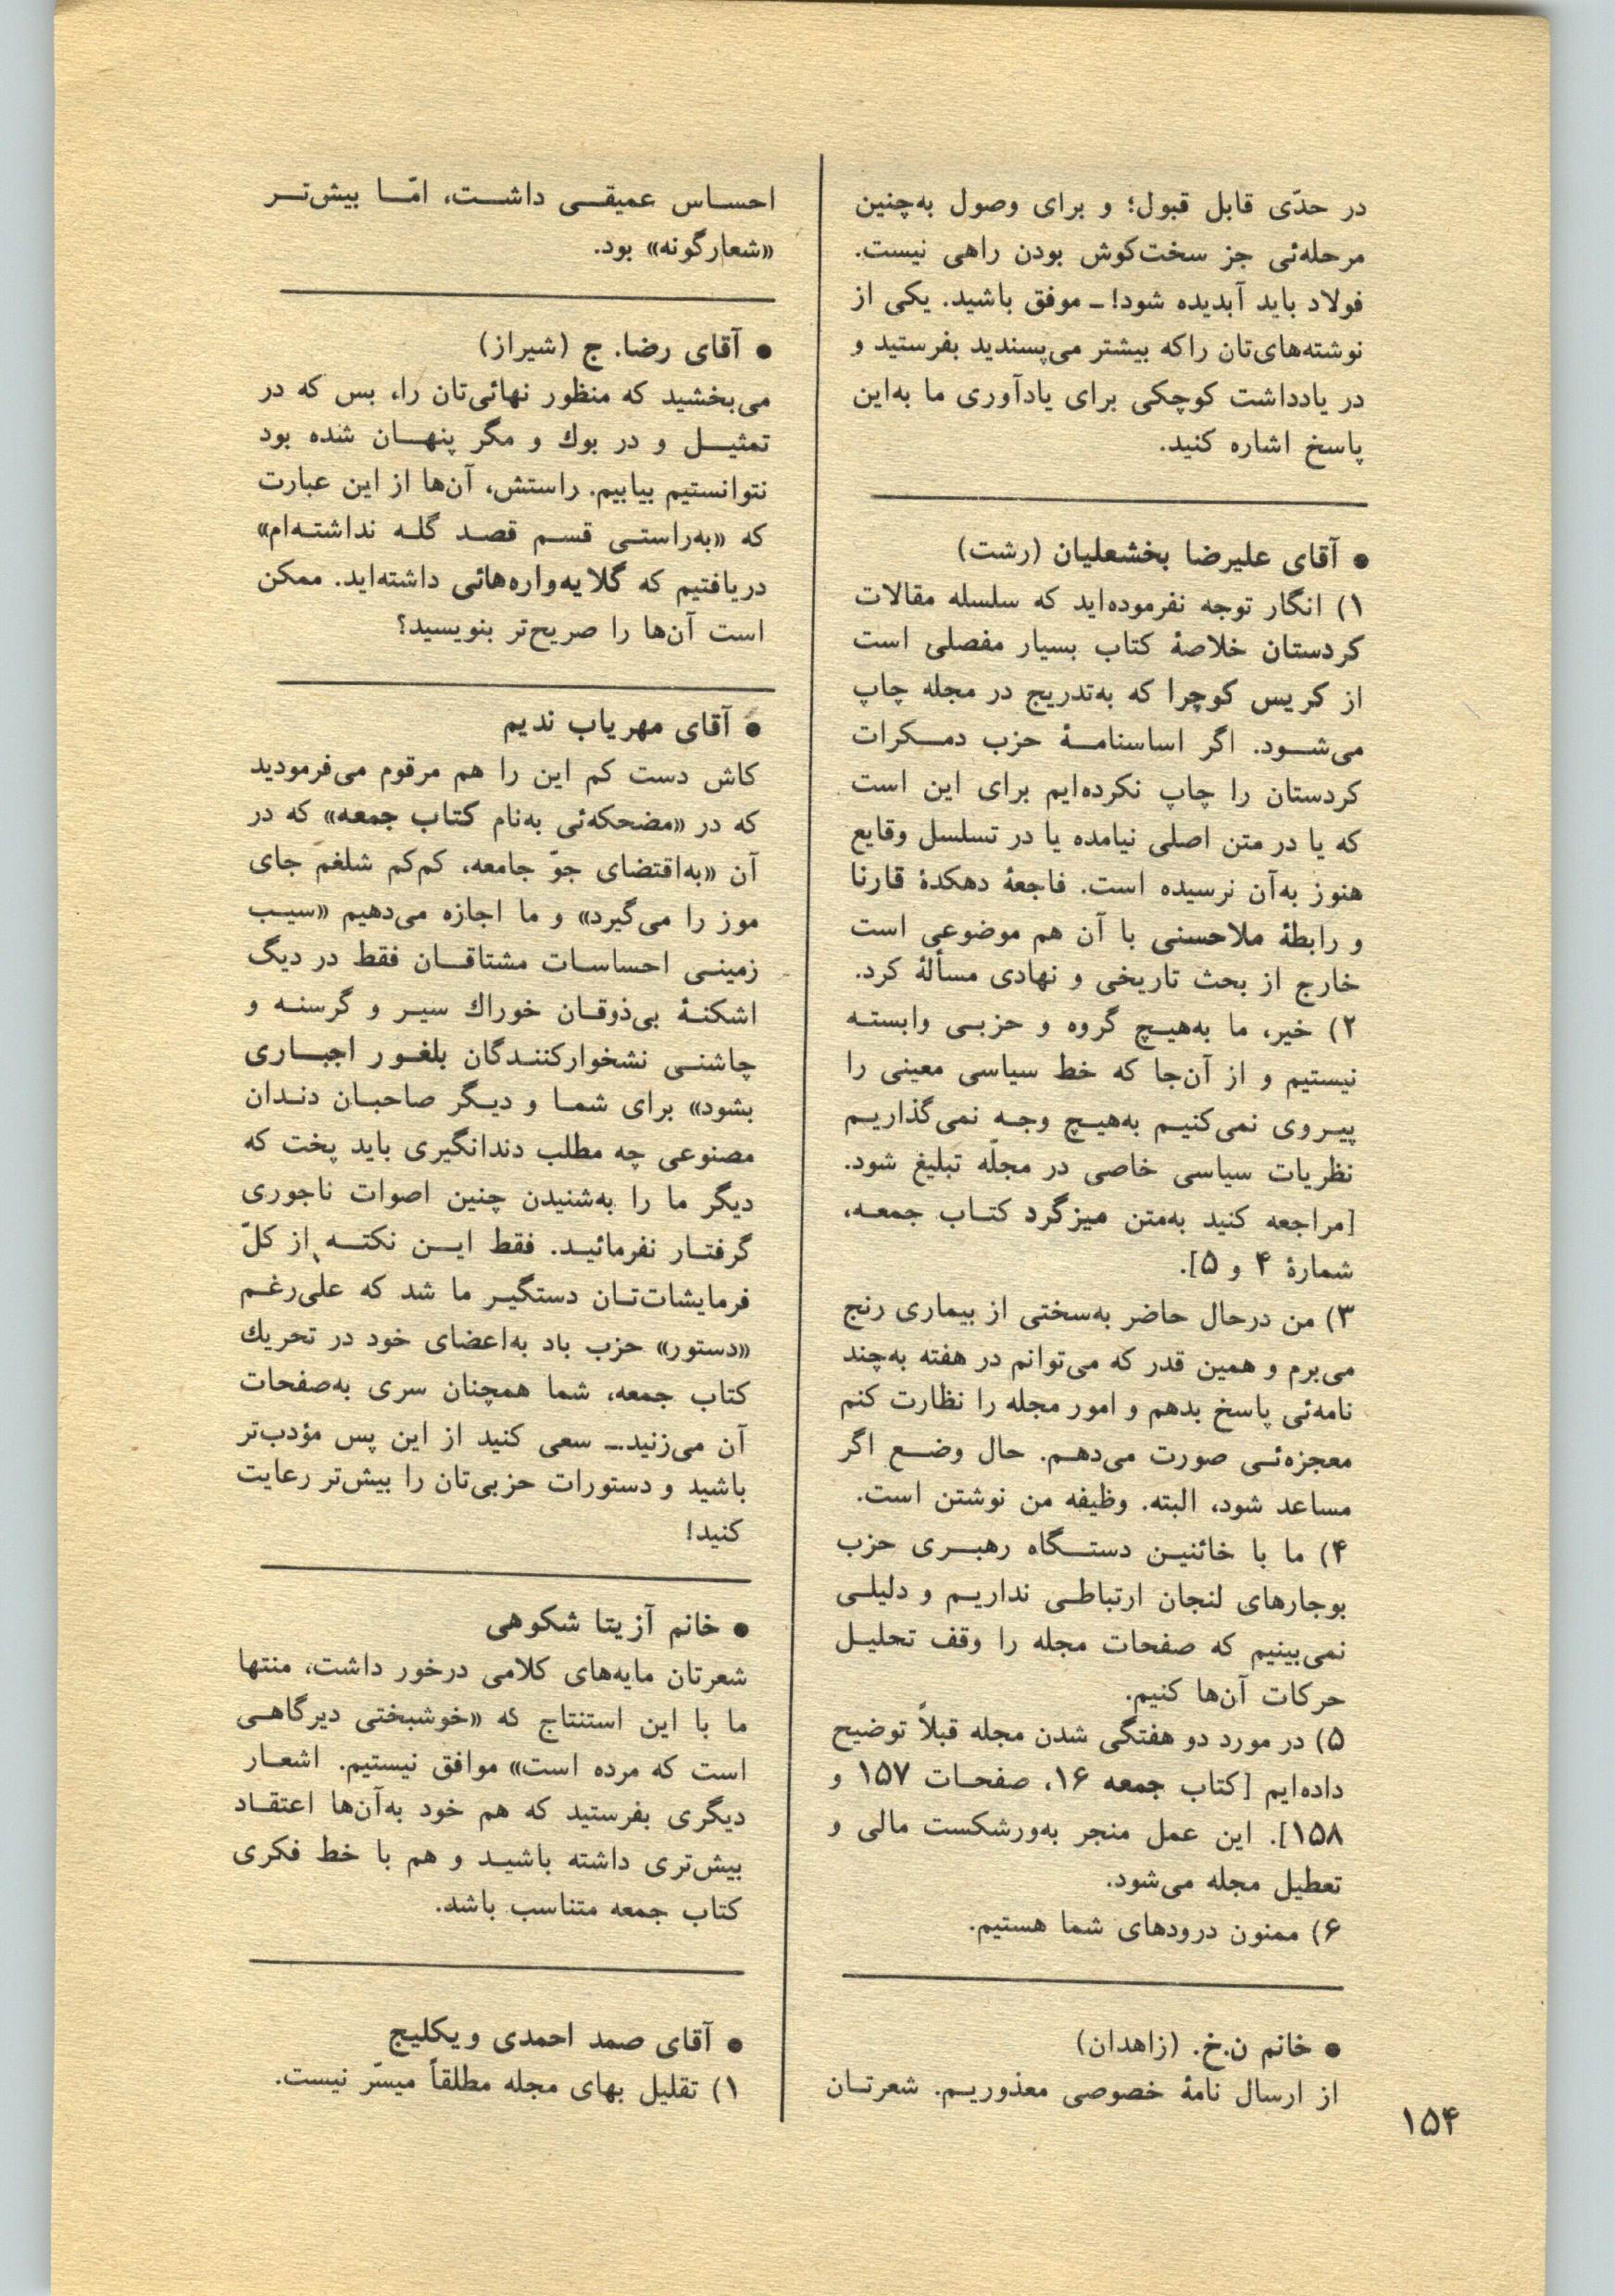 در حدّی قابل قبول؛ و برای وصول به‌چنین
مرحله‌ئی جز سخت‌کوش بودن راهی نیست.
فولاد باید آبدیده شود! ـ موفق باشید. یکی از
نوشته‌های‌تان راکه بیشتر می‌پسندید بفرستید و
در یادداشت کوچکی برای یادآوری ما به‌این
پاسخ اشاره کنید.
● آقای علیرضا بخشعلیان (رشت)
۱) انگار توجه نفرموده‌اید که سلسله مقالات
کردستان خلاصهٔ کتاب بسیار مفصلی است
از کریس کوچرا که به‌تدریج در مجله چاپ
می‌شود. اگر اساسنامهٔ حزب دمکرات
کردستان را چاپ نکرده‌ایم برای این است
که یا در متن اصلی نیامده یا در تسلسل وقایع
هنوز به‌آن نرسیده است. فاجعهٔ دهکدهٔ قارنا
و رابطهٔ ملاحسنی با آن هم موضوعی است
خارج از بحث تاریخی و نهادی مسألهٔ کرد.
۲) خیر، ما به‌هیچ گروه و حزبی وابسته
نیستیم و از آن‌جا که خط سیاسی معینی را
پیروی نمی‌کنیم به‌هیچ وجه نمی‌گذاریم
نظریات سیاسی خاصی در مجلّه تبلیغ شود.
[مراجعه کنید به‌متن میزگرد کتاب جمعه،
شمارهٔ ۴ و ۵].
۳) من درحال حاضر به‌سختی از بیماری رنج
می‌برم و همین قدر که می‌توانم در هفته به‌چند
نامه‌ئی پاسخ بدهم و امور مجله را نظارت کنم
معجزه‌ئی صورت می‌دهم. حال وضع اگر
مساعد شود، البته. وظیفه من نوشتن است.
۴) ما با خائنین دستگاه رهبری حزب
بوجارهای لنجان ارتباطی نداریم و دلیلی
نمی‌بینیم که صفحات مجله را وقف تحلیل
حرکات آن‌ها کنیم.
۵) در مورد دو هفتگی شدن مجله قبلاً توضیح
داده‌ایم [کتاب جمعه ۱۶، صفحات ۱۵۷ و
۱۵۸]. این عمل منجر به‌ورشکست مالی و
تعطیل مجله می‌شود.
۶) ممنون درودهای شما هستیم.
● خانم ن.خ. (زاهدان)
از ارسال نامهٔ خصوصی معذوریم. شعرتان
احساس عمیقی داشت، امّا بیش‌تر
«شعارگونه» بود.
● آقای رضا. ج (شیراز)
می‌بخشید که منظور نهائی‌تان را، بس که در
تمثیل و در بوك و مگر پنهان شده بود
نتوانستیم بیابیم. راستش، آن‌ها از این عبارت
که «به‌راستی قسم قصد گله نداشته‌ام»
دریافتیم که گلایه‌واره‌هائی داشته‌اید. ممکن
است آن‌ها را صریح‌تر بنویسید؟
● آقای مهریاب ندیم
کاش دست کم این را هم مرقوم می‌فرمودید
که در «مضحکه‌ئی به‌نام کتاب جمعه» که در
آن «به‌اقتضای جوّ جامعه، کم‌کم شلغم جای
موز را می‌گیرد» و ما اجازه می‌دهیم «سیب
زمینی احساسات مشتاقان فقط در دیگ
اشکنهٔ بی‌ذوقان خوراك سیر و گرسنه و
چاشنی نشخوارکنندگان بلغور اجباری
بشود» برای شما و دیگر صاحبان دندان
مصنوعی چه مطلب دندانگیری باید پخت که
دیگر ما را به‌شنیدن چنین اصوات ناجوری
گرفتار نفرمائید. فقط این نکته از کلّ
فرمایشات‌تان دستگیر ما شد که علی‌رغم
«دستور» حزب باد به‌اعضای خود در تحریك
کتاب جمعه، شما همچنان سری به‌صفحات
آن می‌زنید.ـ سعی کنید از این پس مؤدب‌تر
باشید و دستورات حزبی‌تان را بیش‌تر رعایت
کنید!
● خانم آزیتا شکوهی
شعرتان مایه‌های کلامی درخور داشت، منتها
ما با این استنتاج که «خوشبختی دیرگاهی
است که مرده است» موافق نیستیم. اشعار
دیگری بفرستید که هم خود به‌آن‌ها اعتقاد
بیش‌تری داشته باشید و هم با خط فکری
کتاب جمعه متناسب باشد.
● آقای صمد احمدی ویکلیج
۱) تقلیل بهای مجله مطلقاً میسّر نیست.
۱۵۴